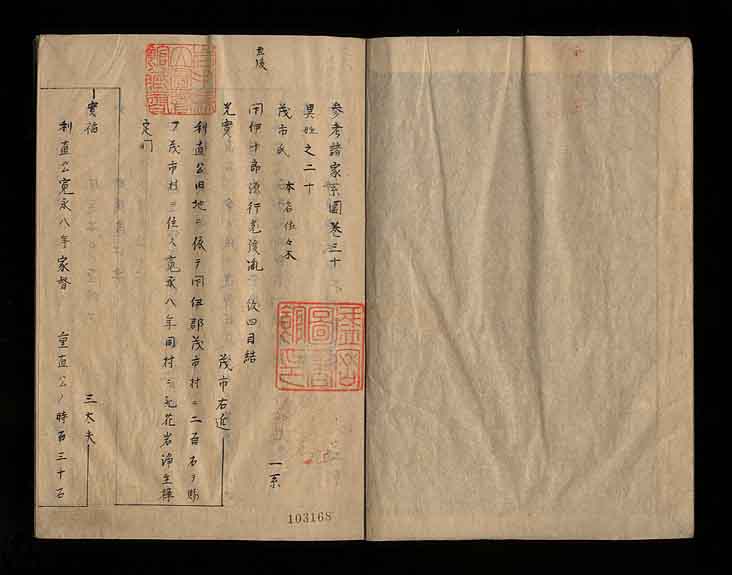 参考諸家系圖巻三十
異姓之二十
茂市氏 本名佐々木 一系
閉伊十郎源行光後胤 紋四目結
光實 茂市右近
利直公旧地ニ依テ閉伊郡茂市村ニ二百石ヲ賜
フ茂市村ニ住ス寛永八年同村ニ死花岩浄生禅
定門
實福 三太夫
利直公寛永八年家督 重直公ノ時百三十石
103168